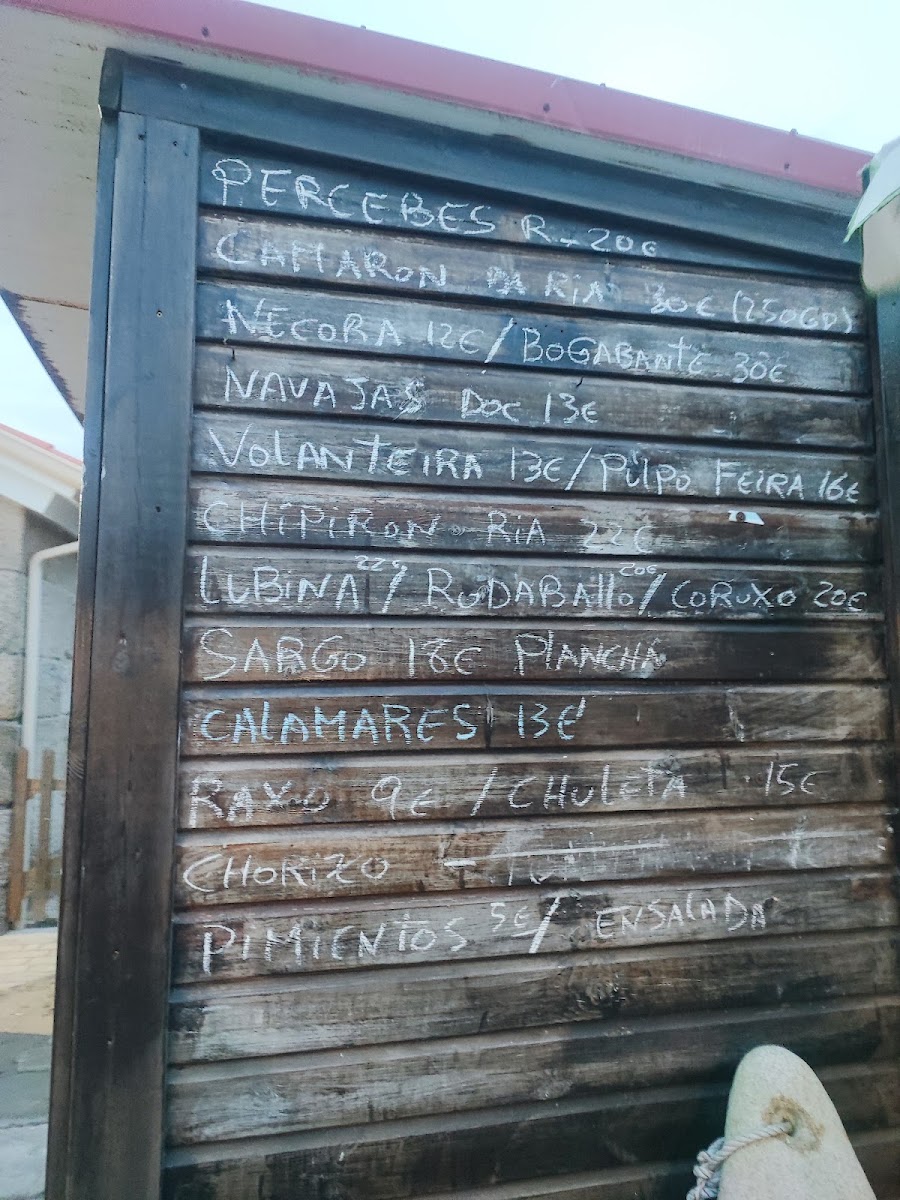 PERCEBES R. 20€
CAMARON DA RIA 30€ (250GD)
NECORA 12€/BOGABANTE 30€
NAVAJAS DOC 13€
VOLANTEIRA 13€/PULPO FEIRA 16€
CHIPIRON RIA 22€
LUBINA 22€/RODABALLO 20€/CORUXO 20€
SARGO 18€ PLANCHA
CALAMARES 13€
RAXO 9€/CHULETA 15€
CHORIZO
PIMIENTOS 5€/ENSALADA